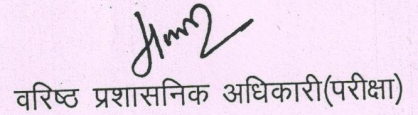 वरिष्ठ प्रशासनिक अधिकारी(परीक्षा)